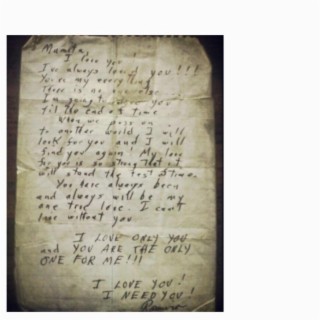 Mamita,
I love you
I've always loved you!!!
You're my everything
There is no
I'm going to love you
til the end of time
When we pass on
to another world I will
look for you and I will
find you again! My love
for you is so strong that it
will stand the test of time.
You have always been
and always will be my
one true love. I can't
live without you
I LOVE ONLY YOU
and YOU ARE THE ONLY
ONE FOR ME!!!
I LOVE YOU!
I NEED YOU!